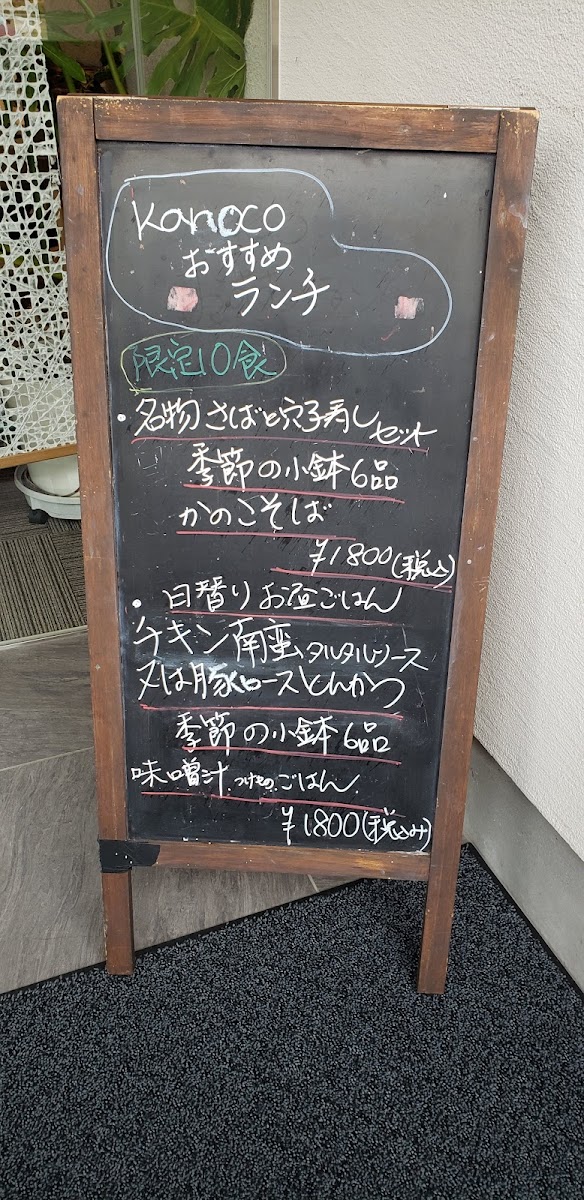 Kanoco
おすすめ
ランチ
限定10食
・名物さばと穴子寿しセット
季節の小鉢6品
かのこそば
¥1800(税込)
・日替りお昼ごはん
チキン南蛮タルタルソース
又は豚ロースとんかつ
季節の小鉢6品
味噌汁.つけもの.ごはん.
¥1800(税込み)